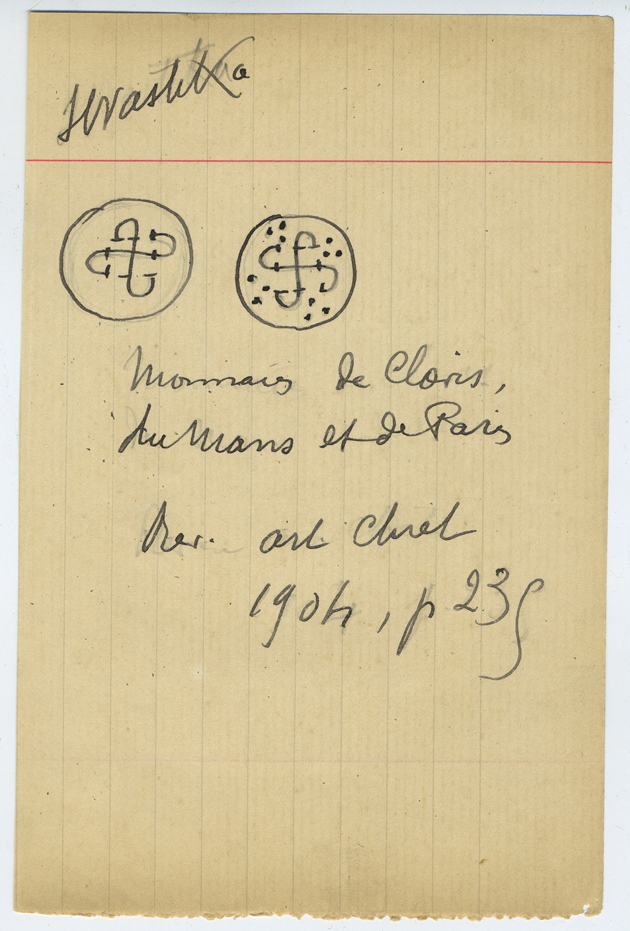 Swastika
Monnaies de Clovis,
du Mans et de Paris
Rev. art chret
1904, p 235